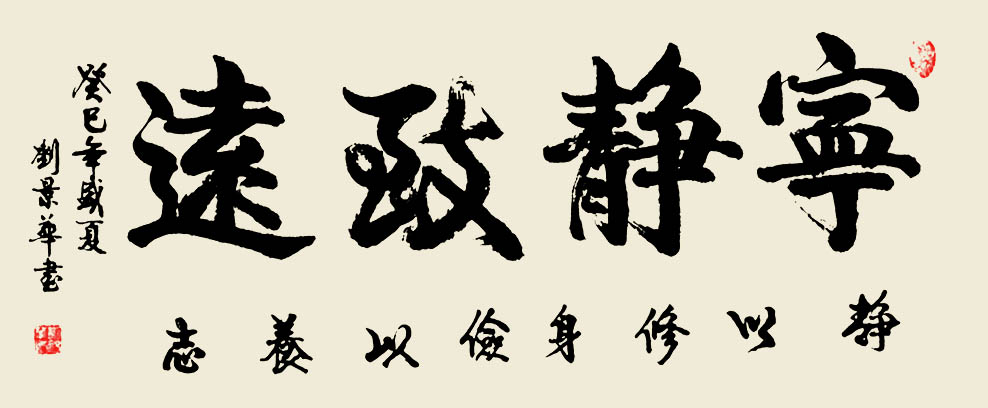 寧靜致遠
静以修身儉以養志
癸巳年盛夏
劉景華書